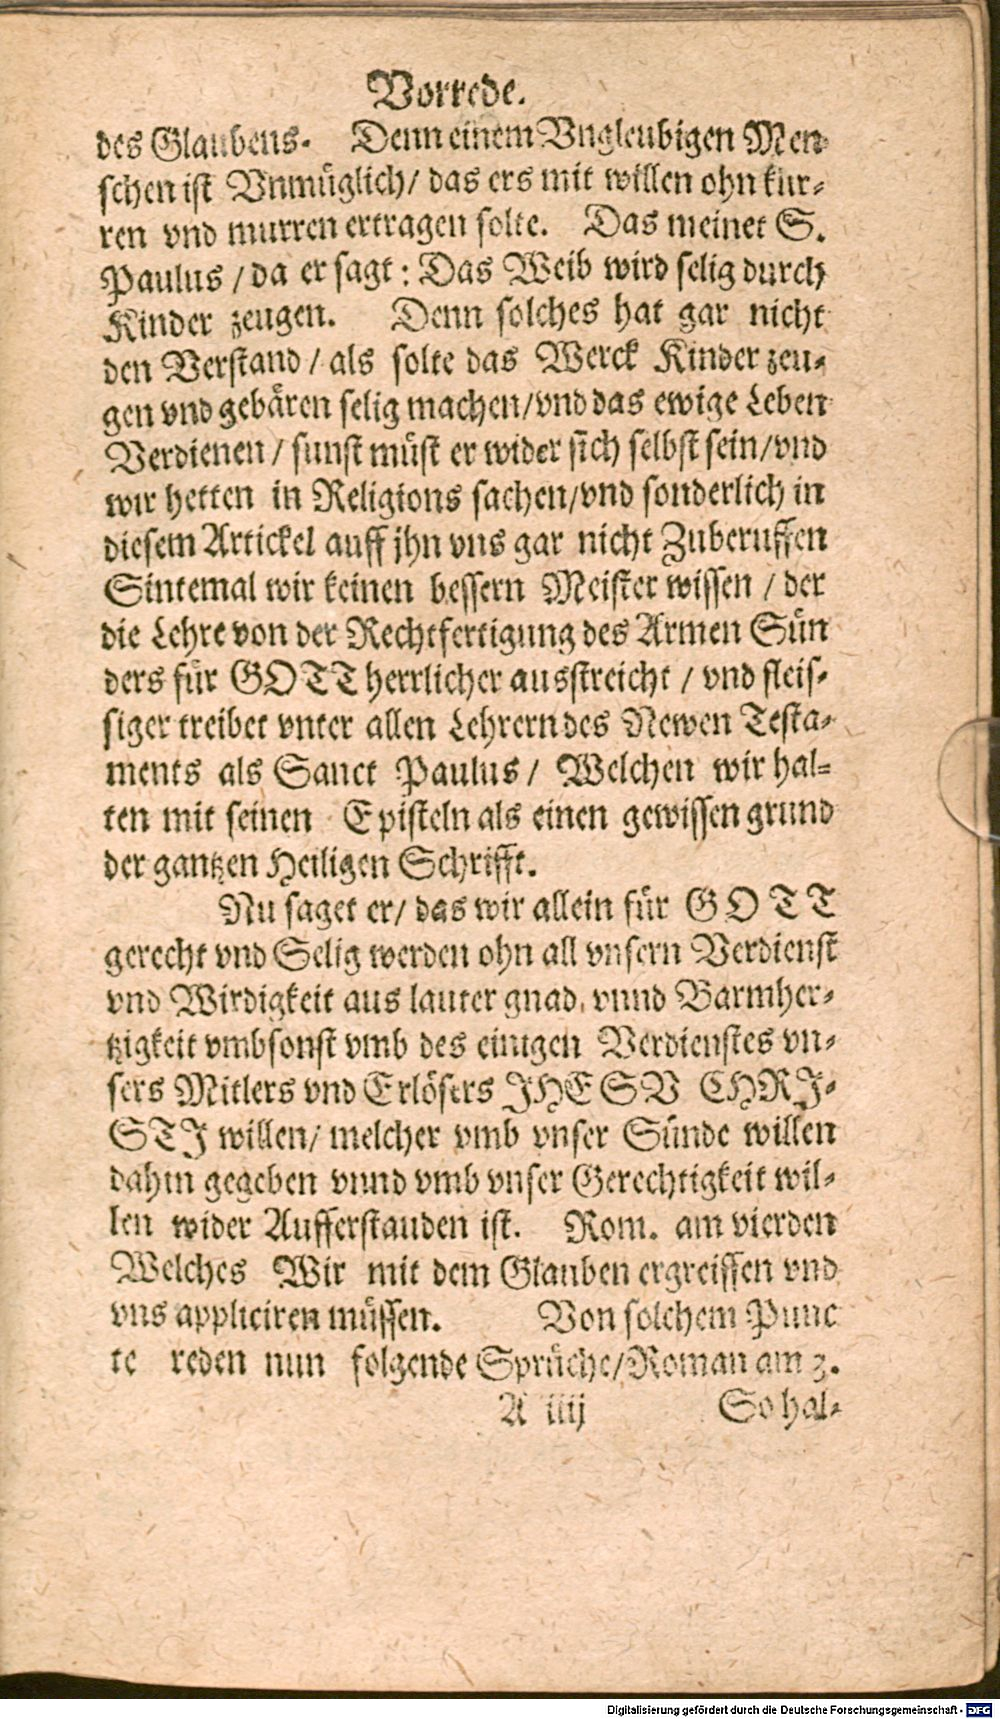 Vorrede.
des Glaubens. Denn einem Vngleubigen Men-
schen ist Vnmüglich/ das ers mit willen ohn kur-
ren vnd murren ertragen solte. Das meinet S.
Paulus / da er sagt: Das Weib wird selig durch
Kinder zeugen. Denn solches hat gar nicht
den Verstand / als solte das Werck Kinder zeu-
gen vnd gebären selig machen/vnd das ewige Leben
Verdienen / sunst müst er wider sich selbst sein/vnd
wir hetten in Religions sachen/vnd sonderlich in
diesem Artickel auff jhn vns gar nicht Zuberuffen
Sintemal wir keinen bessern Meister wissen / der
die Lehre von der Rechtfertigung des Armen Sün
ders für GOTT herrlicher ausstreicht / vnd fleis-
siger treibet vnter allen Lehrern des Newen Testa-
ments als Sanct Paulus / Welchen wir hal-
ten mit seinen Episteln als einen gewissen grund
der gantzen Heiligen Schrifft.
Nu saget er/ das wir allein für GOTT
gerecht vnd Selig werden ohn all vnsern Verdienst
vnd Wirdigkeit aus lauter gnad, vnnd Barmher-
tzigkeit vmbsonst vmb des einigen Verdienstes vn-
sers Mitlers vnd Erlösers JHESV CHRJ-
STJ willen/ melcher vmb vnser Sünde willen
dahin gegeben vnnd vmb vnser Gerechtigkeit wil-
len wider Aufferstauden ist. Rom. am vierden
Welches Wir mit dem Glauben ergreiffen vnd
vns appliciren müssen. Von solchem Punc
te reden nun folgende Sprüche/Roman am 3.
A iiij So hal-
Digitalisierung gefördert durch die Deutsche Forschungsgemeinschaft - DFG